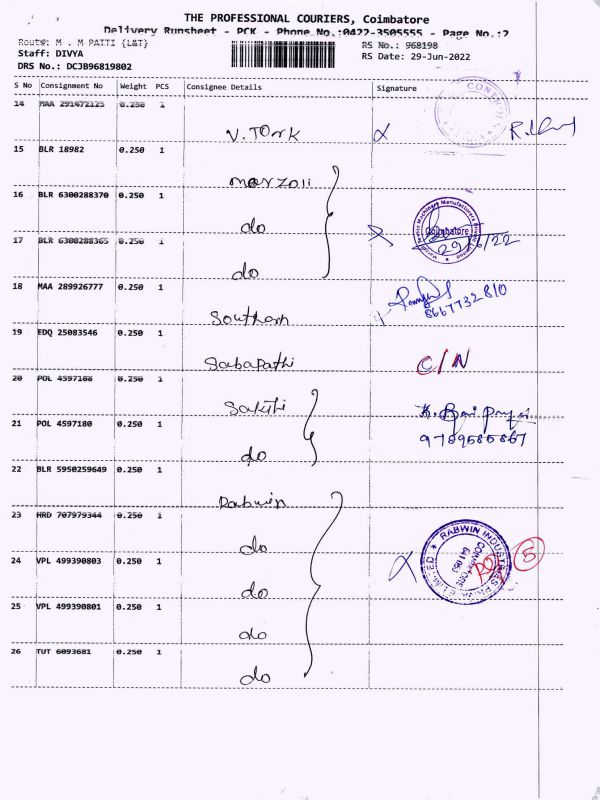 THE PROFESSIONAL COURIERS, Coimbatore
Delivery Runsheet - PCK - Phone No.:0422-3505555 - Page No.:2
Route#: M . M PATTI {L&T}
RS No.: 968198
Staff: DIVYA
RS Date: 29-Jun-2022
DRS No.: DCJB96819802
S No Consignment No Weight PCS Consignee Details Signature
14 MAA 291672125 0.250 1
V. TORK
15 BLR 18982 0.250 1
marzoli
16 BLR 6300288370 0.250 1
do
Coimbatore
29/6/22
17 BLR 6300288365 0.250 1
do
18 MAA 289926777 0.250 1
Southern
8667732810
19 EDQ 25083546 0.250 1
Sabapathi
C/N
20 POL 4597168 0.250 1
Sakthi
21 POL 4597180 0.250 1
do
9789686867
22 BLR 5950259649 0.250 1
Rabwin
23 HRD 707979344 0.250 1
do
RABWIN INDUSTRIES PRIVATE LIMITED
COIMBATORE
5
24 VPL 499390803 0.250 1
do
25 VPL 499390801 0.250 1
do
26 TUT 6093681 0.250 1
do